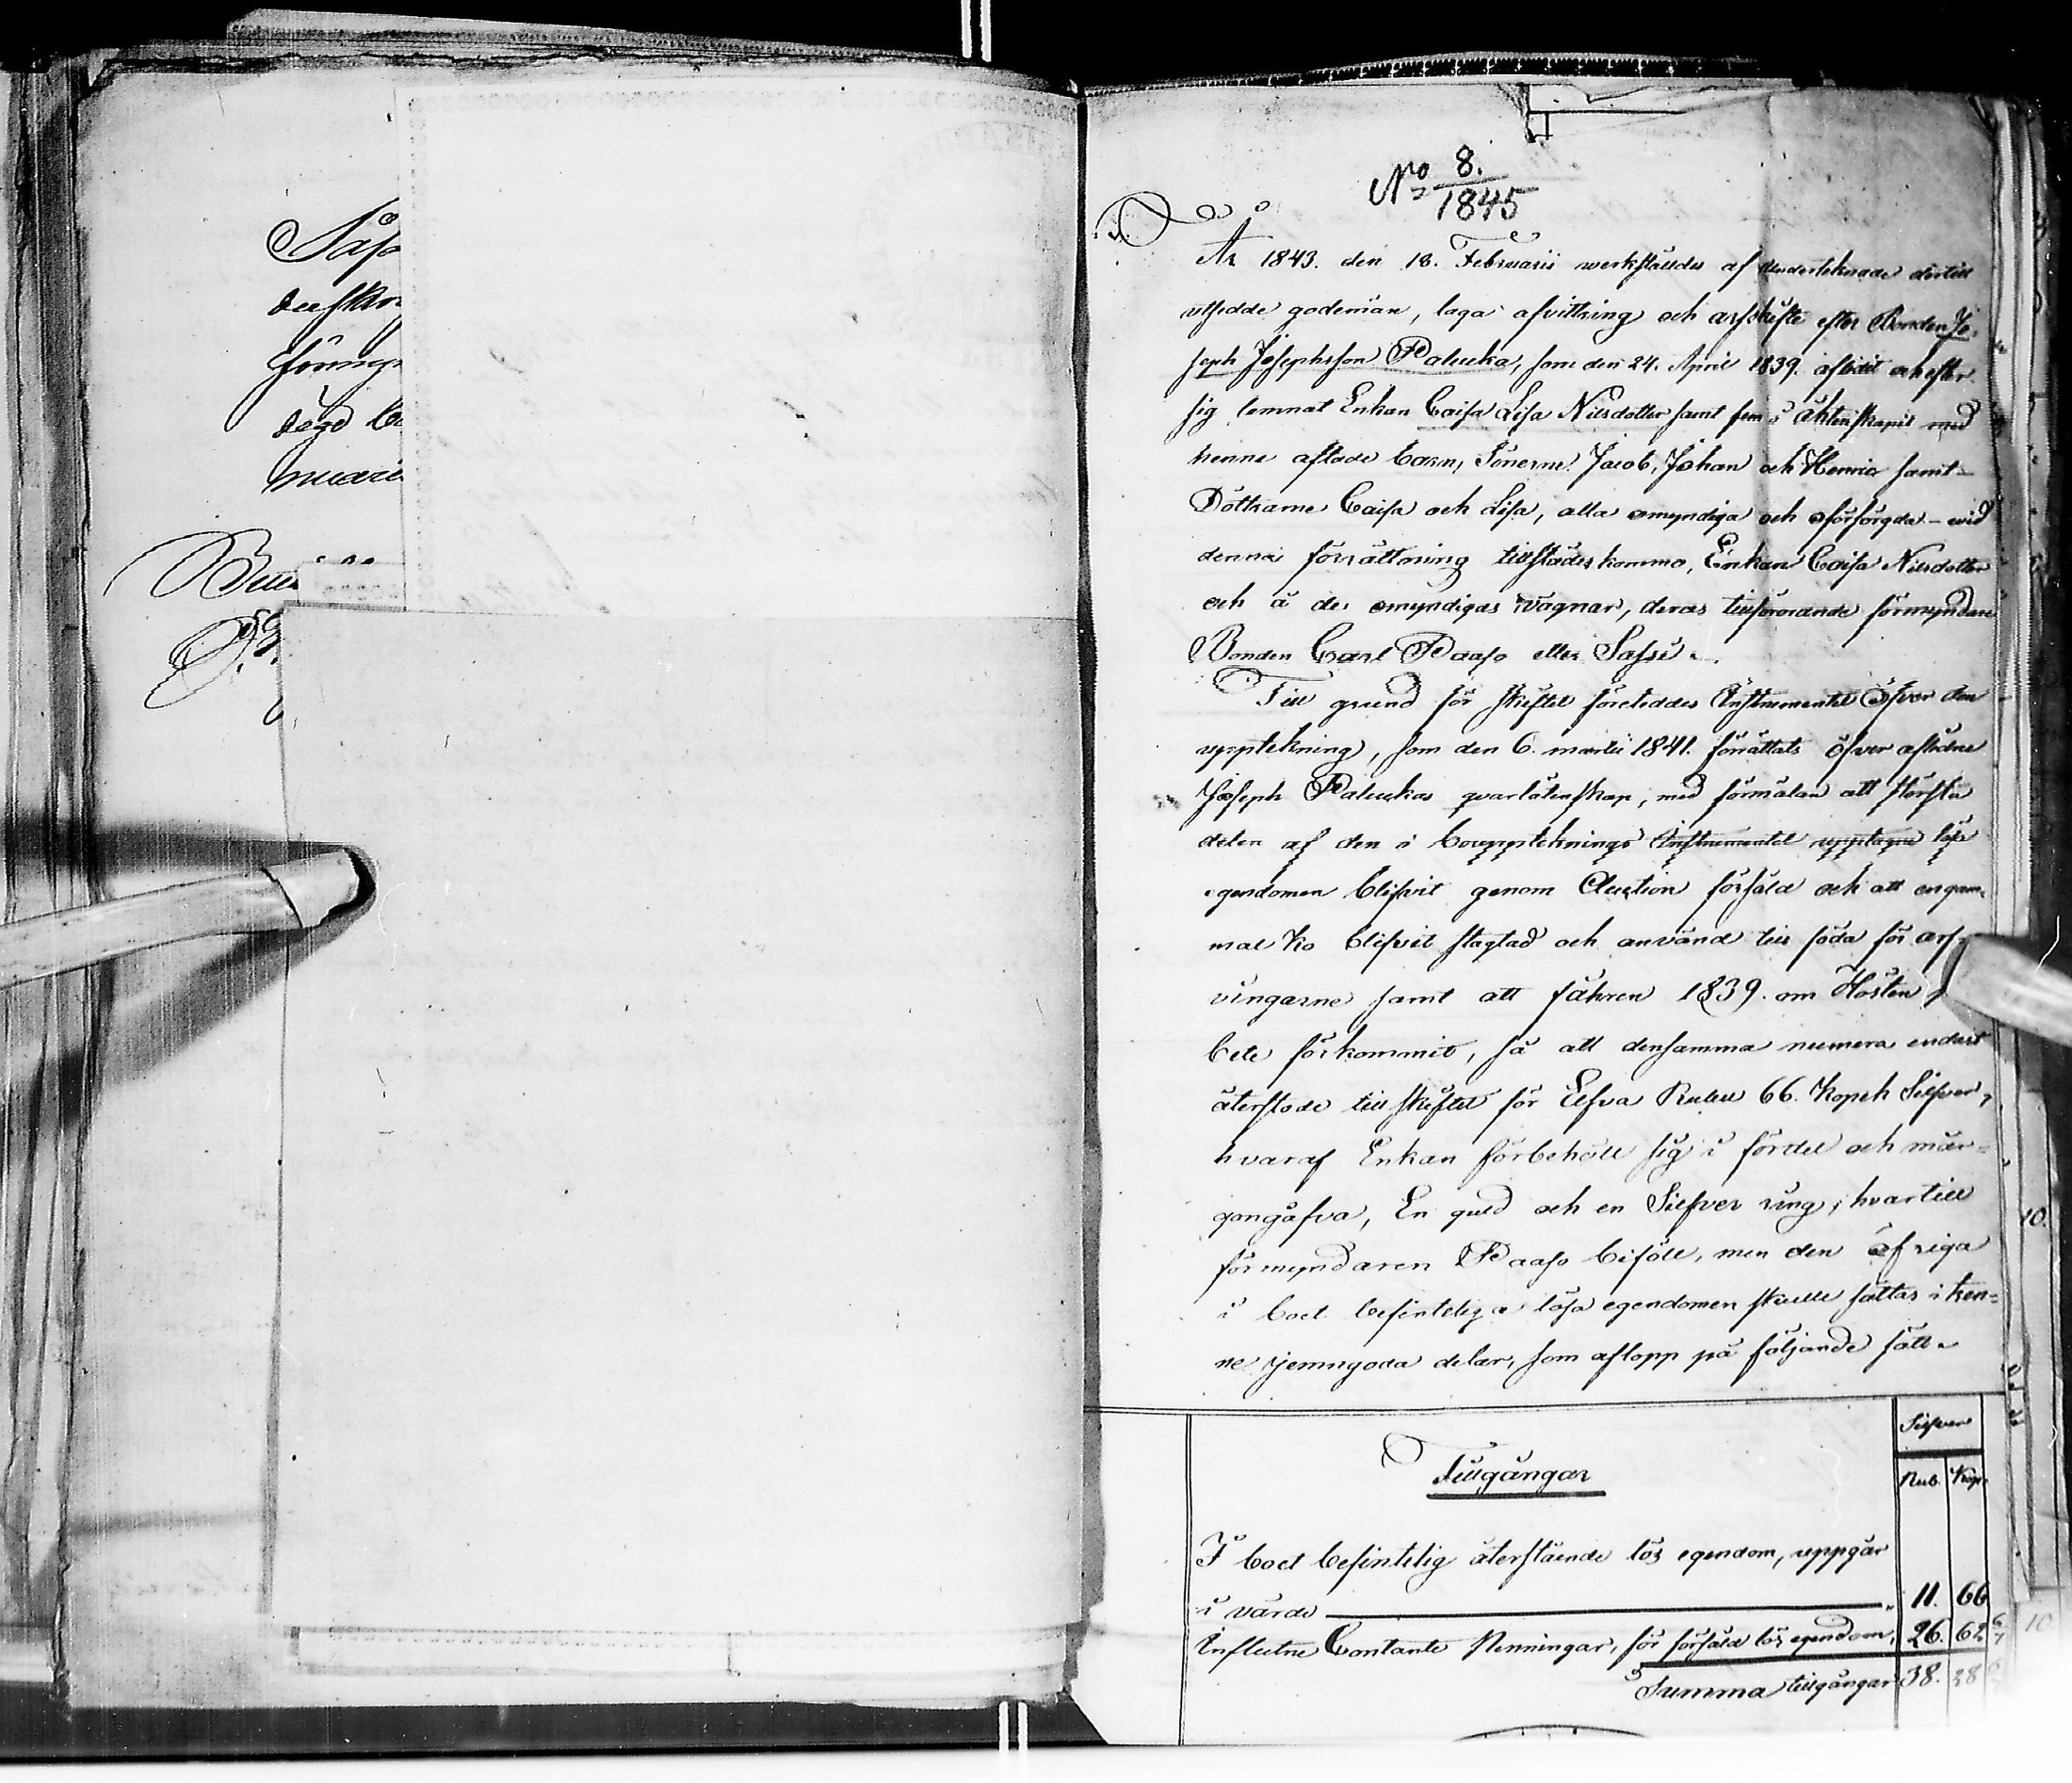 Såso
förmyn
No 8.
1845
År 1843. den 18. Februarii werkställdes af underteknade dertill
utsedde godemän, laga afvittring och arfskifte efter Bonden Jo-
seph Josephsson Palucka, som den 24. April 1839. aflidit och efter
sig lemnat Enkan Caisa Lisa Nilsdotter samt fem i äktenskapet med
henne aflade barn, Sönerne Jacob, Johan och Henric samt
Döttrarne Caisa och Lisa, alla omyndiga och oförsörgda - vid
denna förrättning tillstädes kommo, Enkan Caisa Nilsdotter
och å de omyndigas vägnar, deras tillförordnade förmyndare
Bonden Carl Paaso eller Sassi.
Till grund för skiftet företeddes Instrumentet öfver den
uppteckning, som den 6. martii 1841. förrättats öfver aflidne
Joseph Paluckas qvarlåtenskap, med förmälan att största
delen af den i bouppteknings Instrumentet upptagne lösa
egendomen blifvit genom Auction försåld och att en gam-
mal ko blifvit slagtad och använd till föda för arf-
vingarne samt att fåhren 1839. om Hösten
bete förkommit, så att densamma numera endast
återstode till skiftet för Elfva Rubel 66. Kopek Silfver,
hvaraf Enkan förbehöll sig i fördel och mor-
gongåfva, En guld och en Silfver ring, hvartill
förmyndaren Paaso biföll, men den öfriga
i boet befinteliga lösa egendomen skulle sättas i tven-
ne jemngoda delar, som aflopp på följande sätt.
Silfver
Tillgångar
Rub. Kop.
I boet befintelig återstående lös egendom, uppgår
i värde 11. 66
Influtne Contante Penningar, för försåld lös egendom, 26. 62 6/7
Summa tillgångar 38. 28